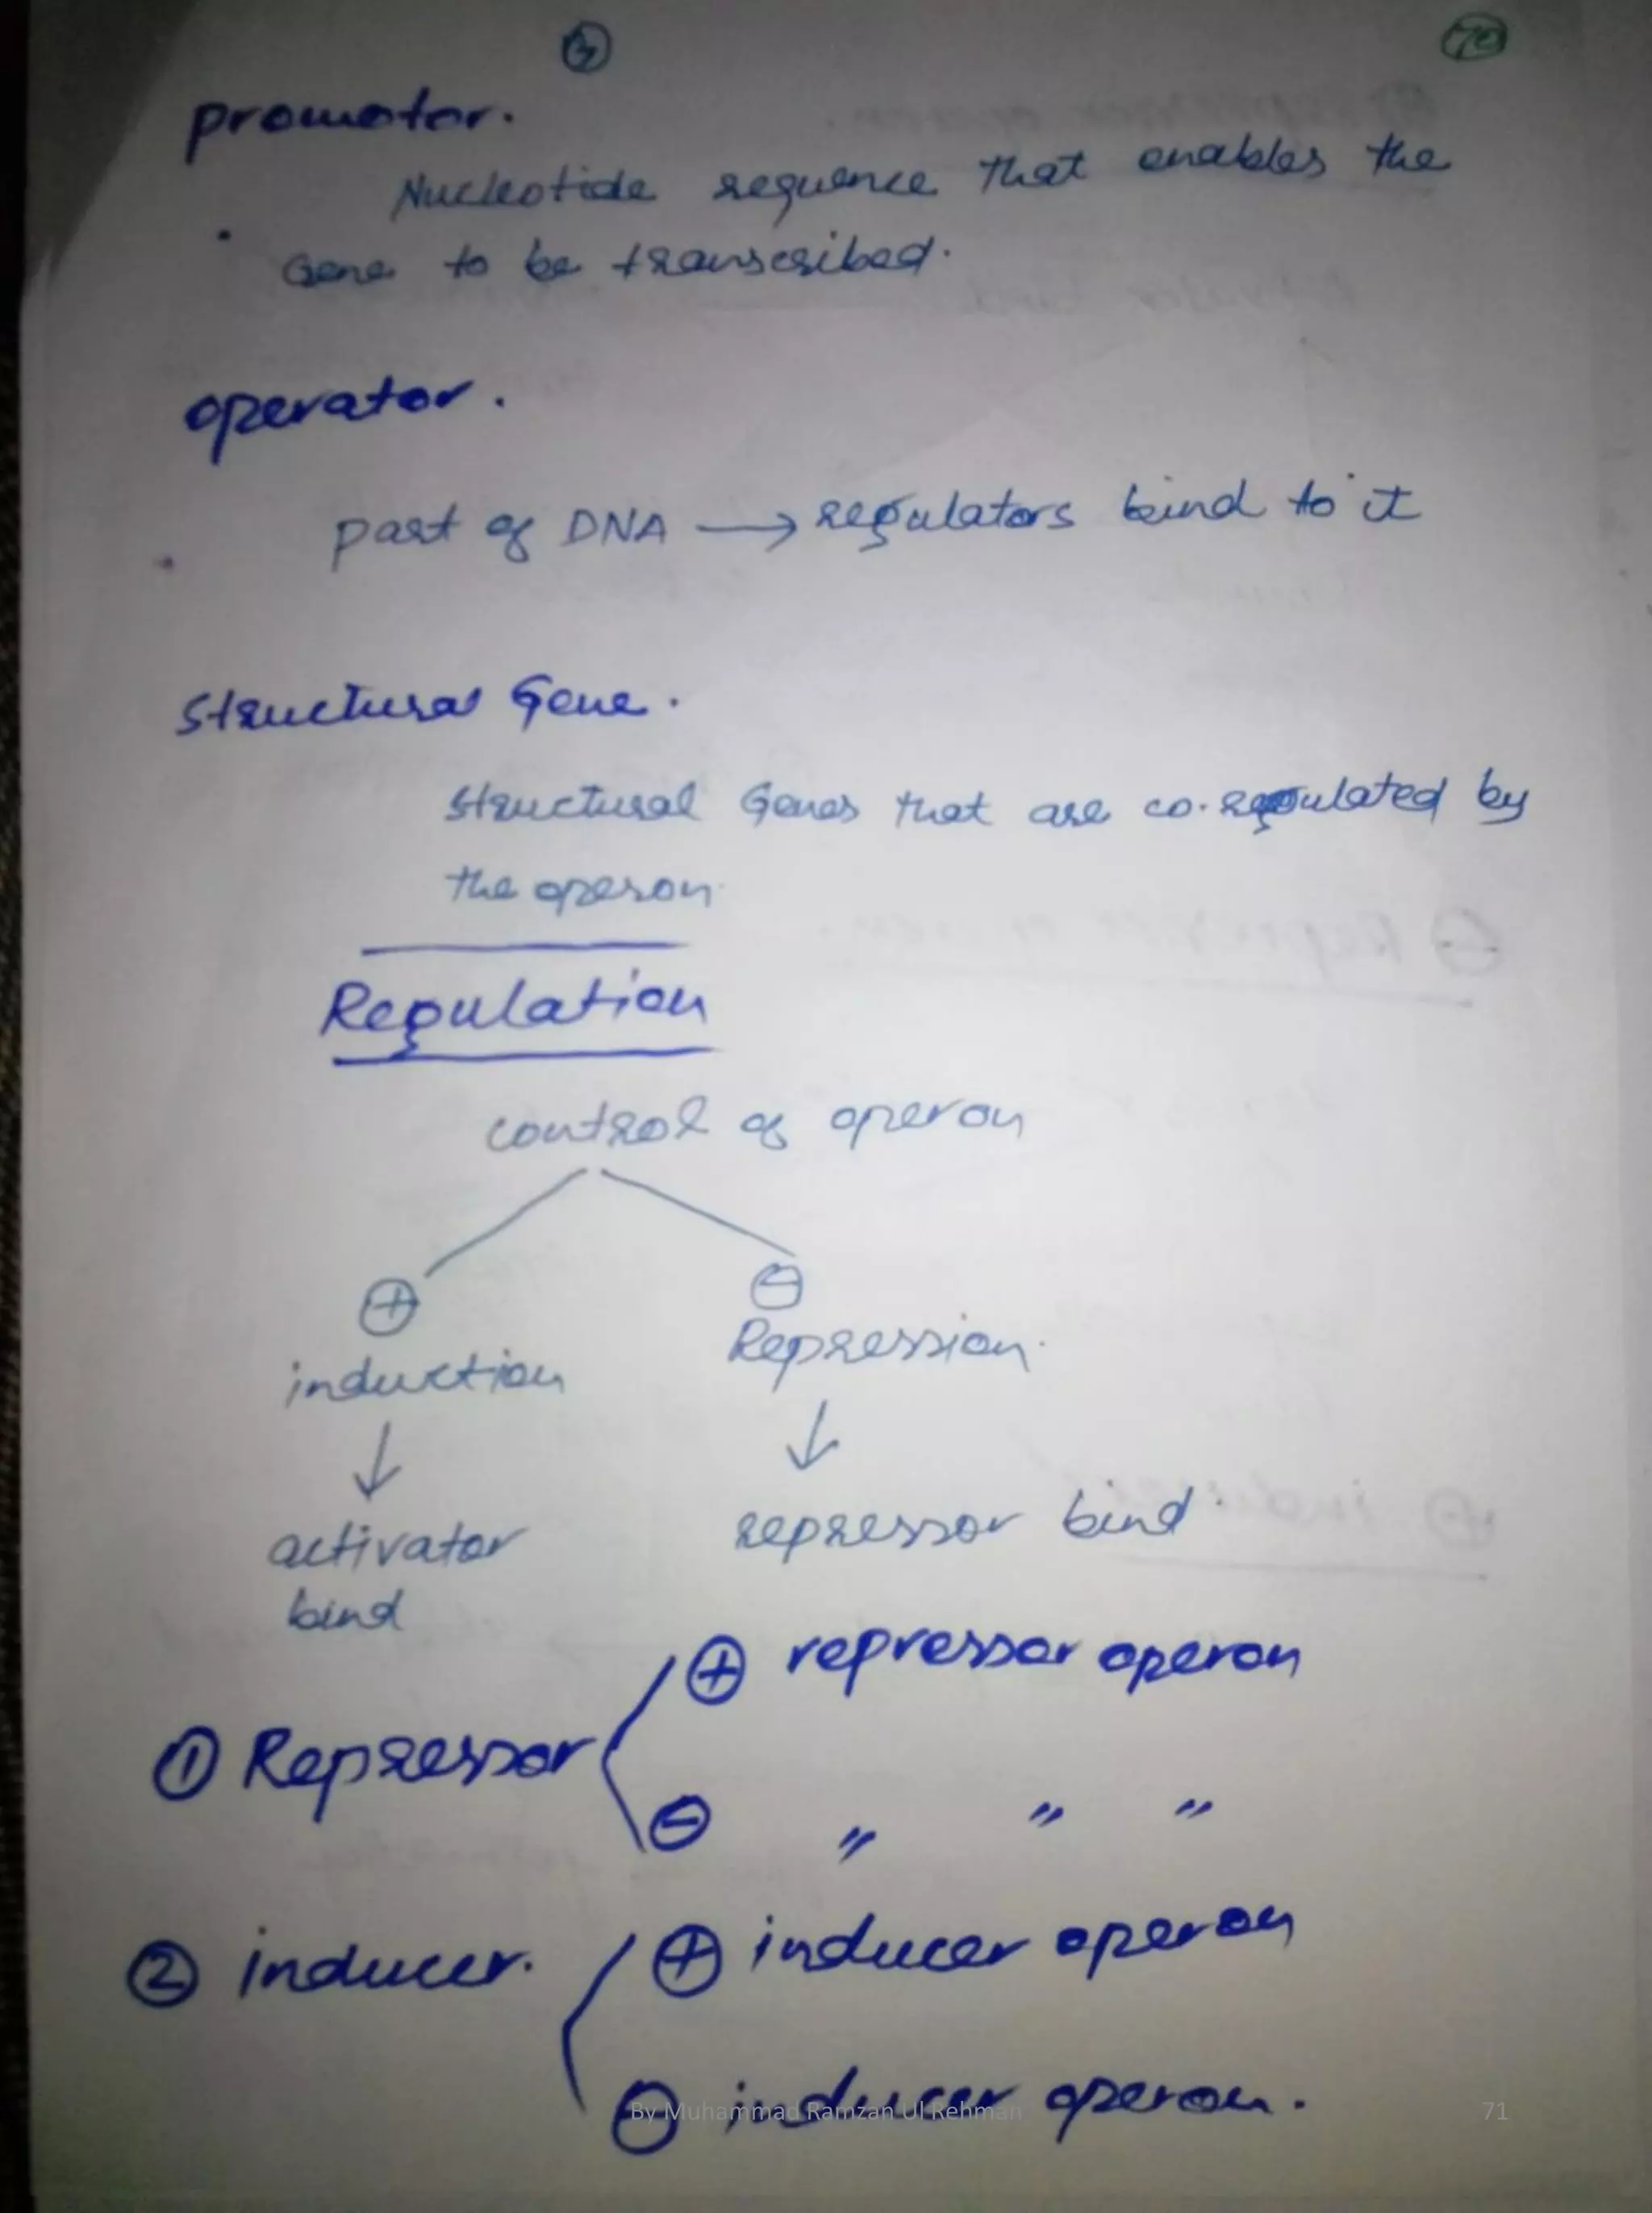 3
70
promotor.
Nucleotide sequence that enables the
Gene to be transcribed.
operator.
part of DNA → regulators bind to it
Structural Gene.
Structural Genes that are co-regulated by
the operon
Regulation
control of operon
⊕ ⊖
induction Repression.
↓ ↓
activator repressor bind
bind
⊕ repressor operon
① Repressor
⊖ " " "
② inducer. ⊕ inducer operon
⊖ inducer operon.
By Muhammad Ramzan Ul Rehman 71